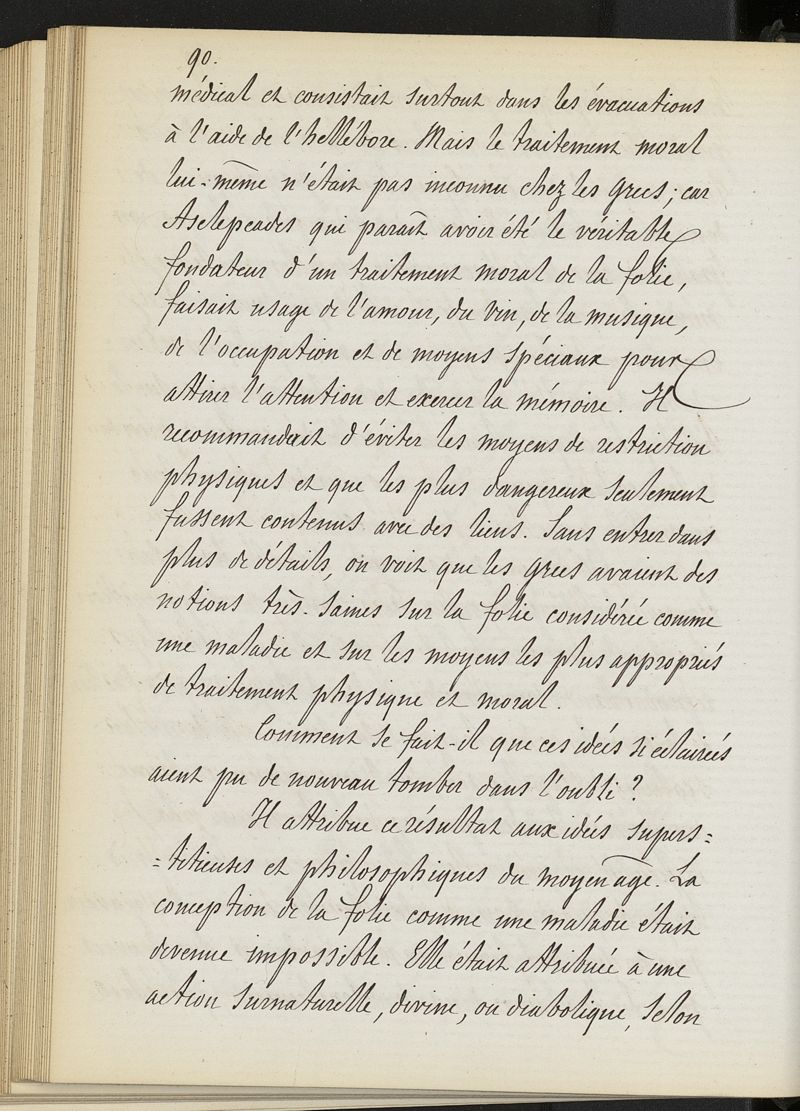 90.
médical et consistait surtout dans les évacuations
à l'aide de l'hellébore. Mais le traitement moral
lui-même n'était pas inconnu chez les grecs; car
Asclepeades qui paraît avoir été le véritable
fondateur d'un traitement moral de la folie,
faisait usage de l'amour, du vin, de la musique,
de l'occupation et de moyens spéciaux pour
attirer l'attention et exercer la mémoire. Il
recommandait d'éviter les moyens de restriction
physiques et que les plus dangereux seulement
fussent contenus avec des liens. Sans entrer dans
plus de détails, on voit que les grecs avaient des
notions très-saines sur la folie considérée comme
une maladie et sur les moyens les plus appropriés
de traitement physique et moral.
Comment se fait-il que ces idées si éclairées
aient pu de nouveau tomber dans l'oubli?
Il attribue ce résultat aux idées supers=
=titieuses et philosophiques du moyen âge. La
conception de la folie comme une maladie était
devenue impossible. Elle était attribuée à une
action surnaturelle, divine, ou diabolique, selon